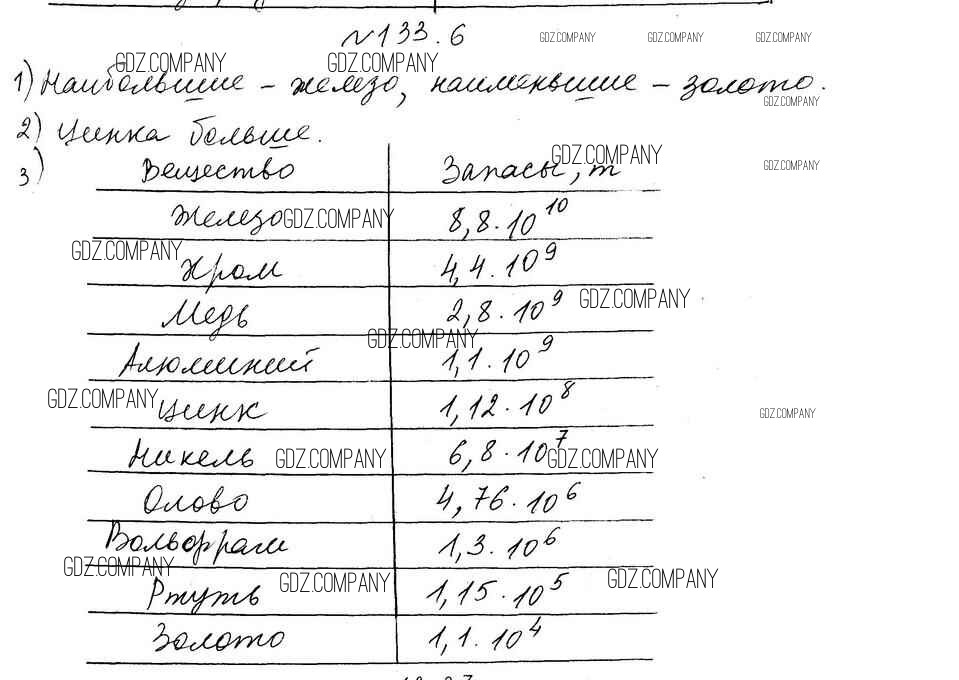 №133.6
GDZ.COMPANY GDZ.COMPANY GDZ.COMPANY
GDZ.COMPANY GDZ.COMPANY
1) Наибольшие – железо, наименьшие – золото.
GDZ.COMPANY
2) Цинка больше.
3)
Вещество Запасы, т
GDZ.COMPANY GDZ.COMPANY
Железо 8,8·10^10
GDZ.COMPANY
GDZ.COMPANY
Хром 4,4·10^9
Медь 2,8·10^9
GDZ.COMPANY
GDZ.COMPANY
Алюминий 1,1·10^9
GDZ.COMPANY
Цинк 1,12·10^8
GDZ.COMPANY
Никель 6,8·10^7
GDZ.COMPANY GDZ.COMPANY
Олово 4,76·10^6
Вольфрам 1,3·10^6
GDZ.COMPANY
Ртуть 1,15·10^5
GDZ.COMPANY GDZ.COMPANY
Золото 1,1·10^4